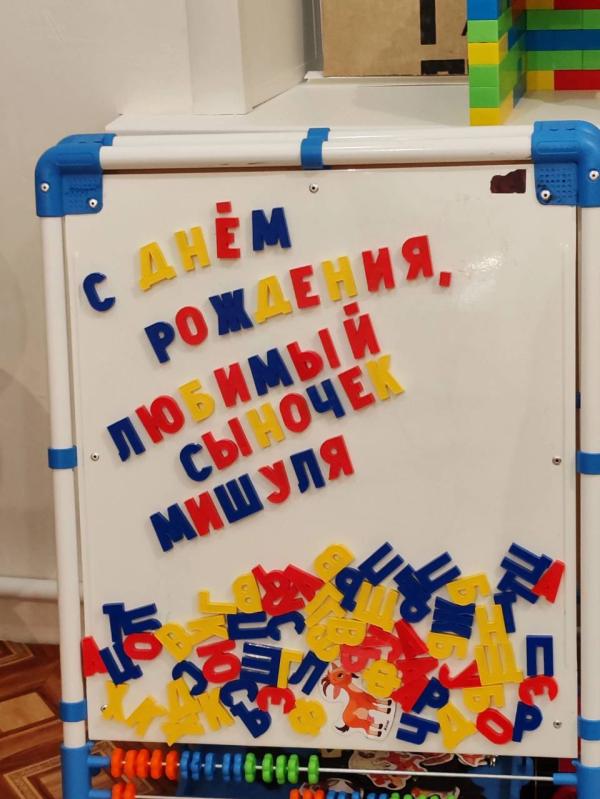 С ДНЁМ
РОЖДЕНИЯ,
ЛЮБИМЫЙ
СЫНОЧЕК
МИШУЛЯ